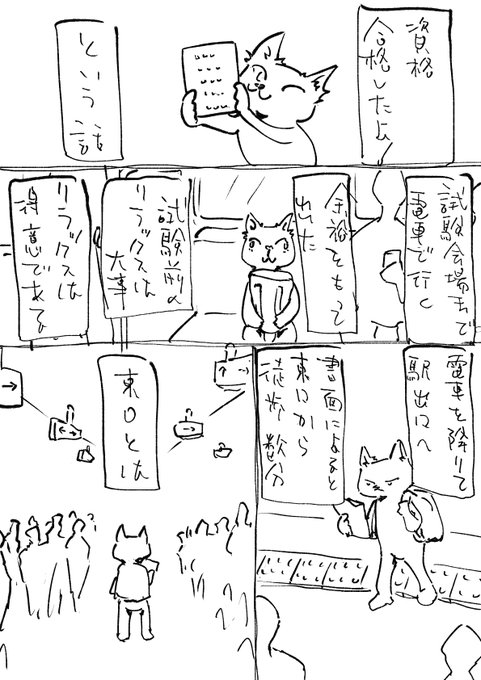 資格
合格したよ
という話
試験会場まで
電車で行く
余裕をもって
出た
試験前の
リラックスは
大事
リラックスは
得意である
電車を降りて
駅出口へ
書面によると
東口から
徒歩数分
東口とは